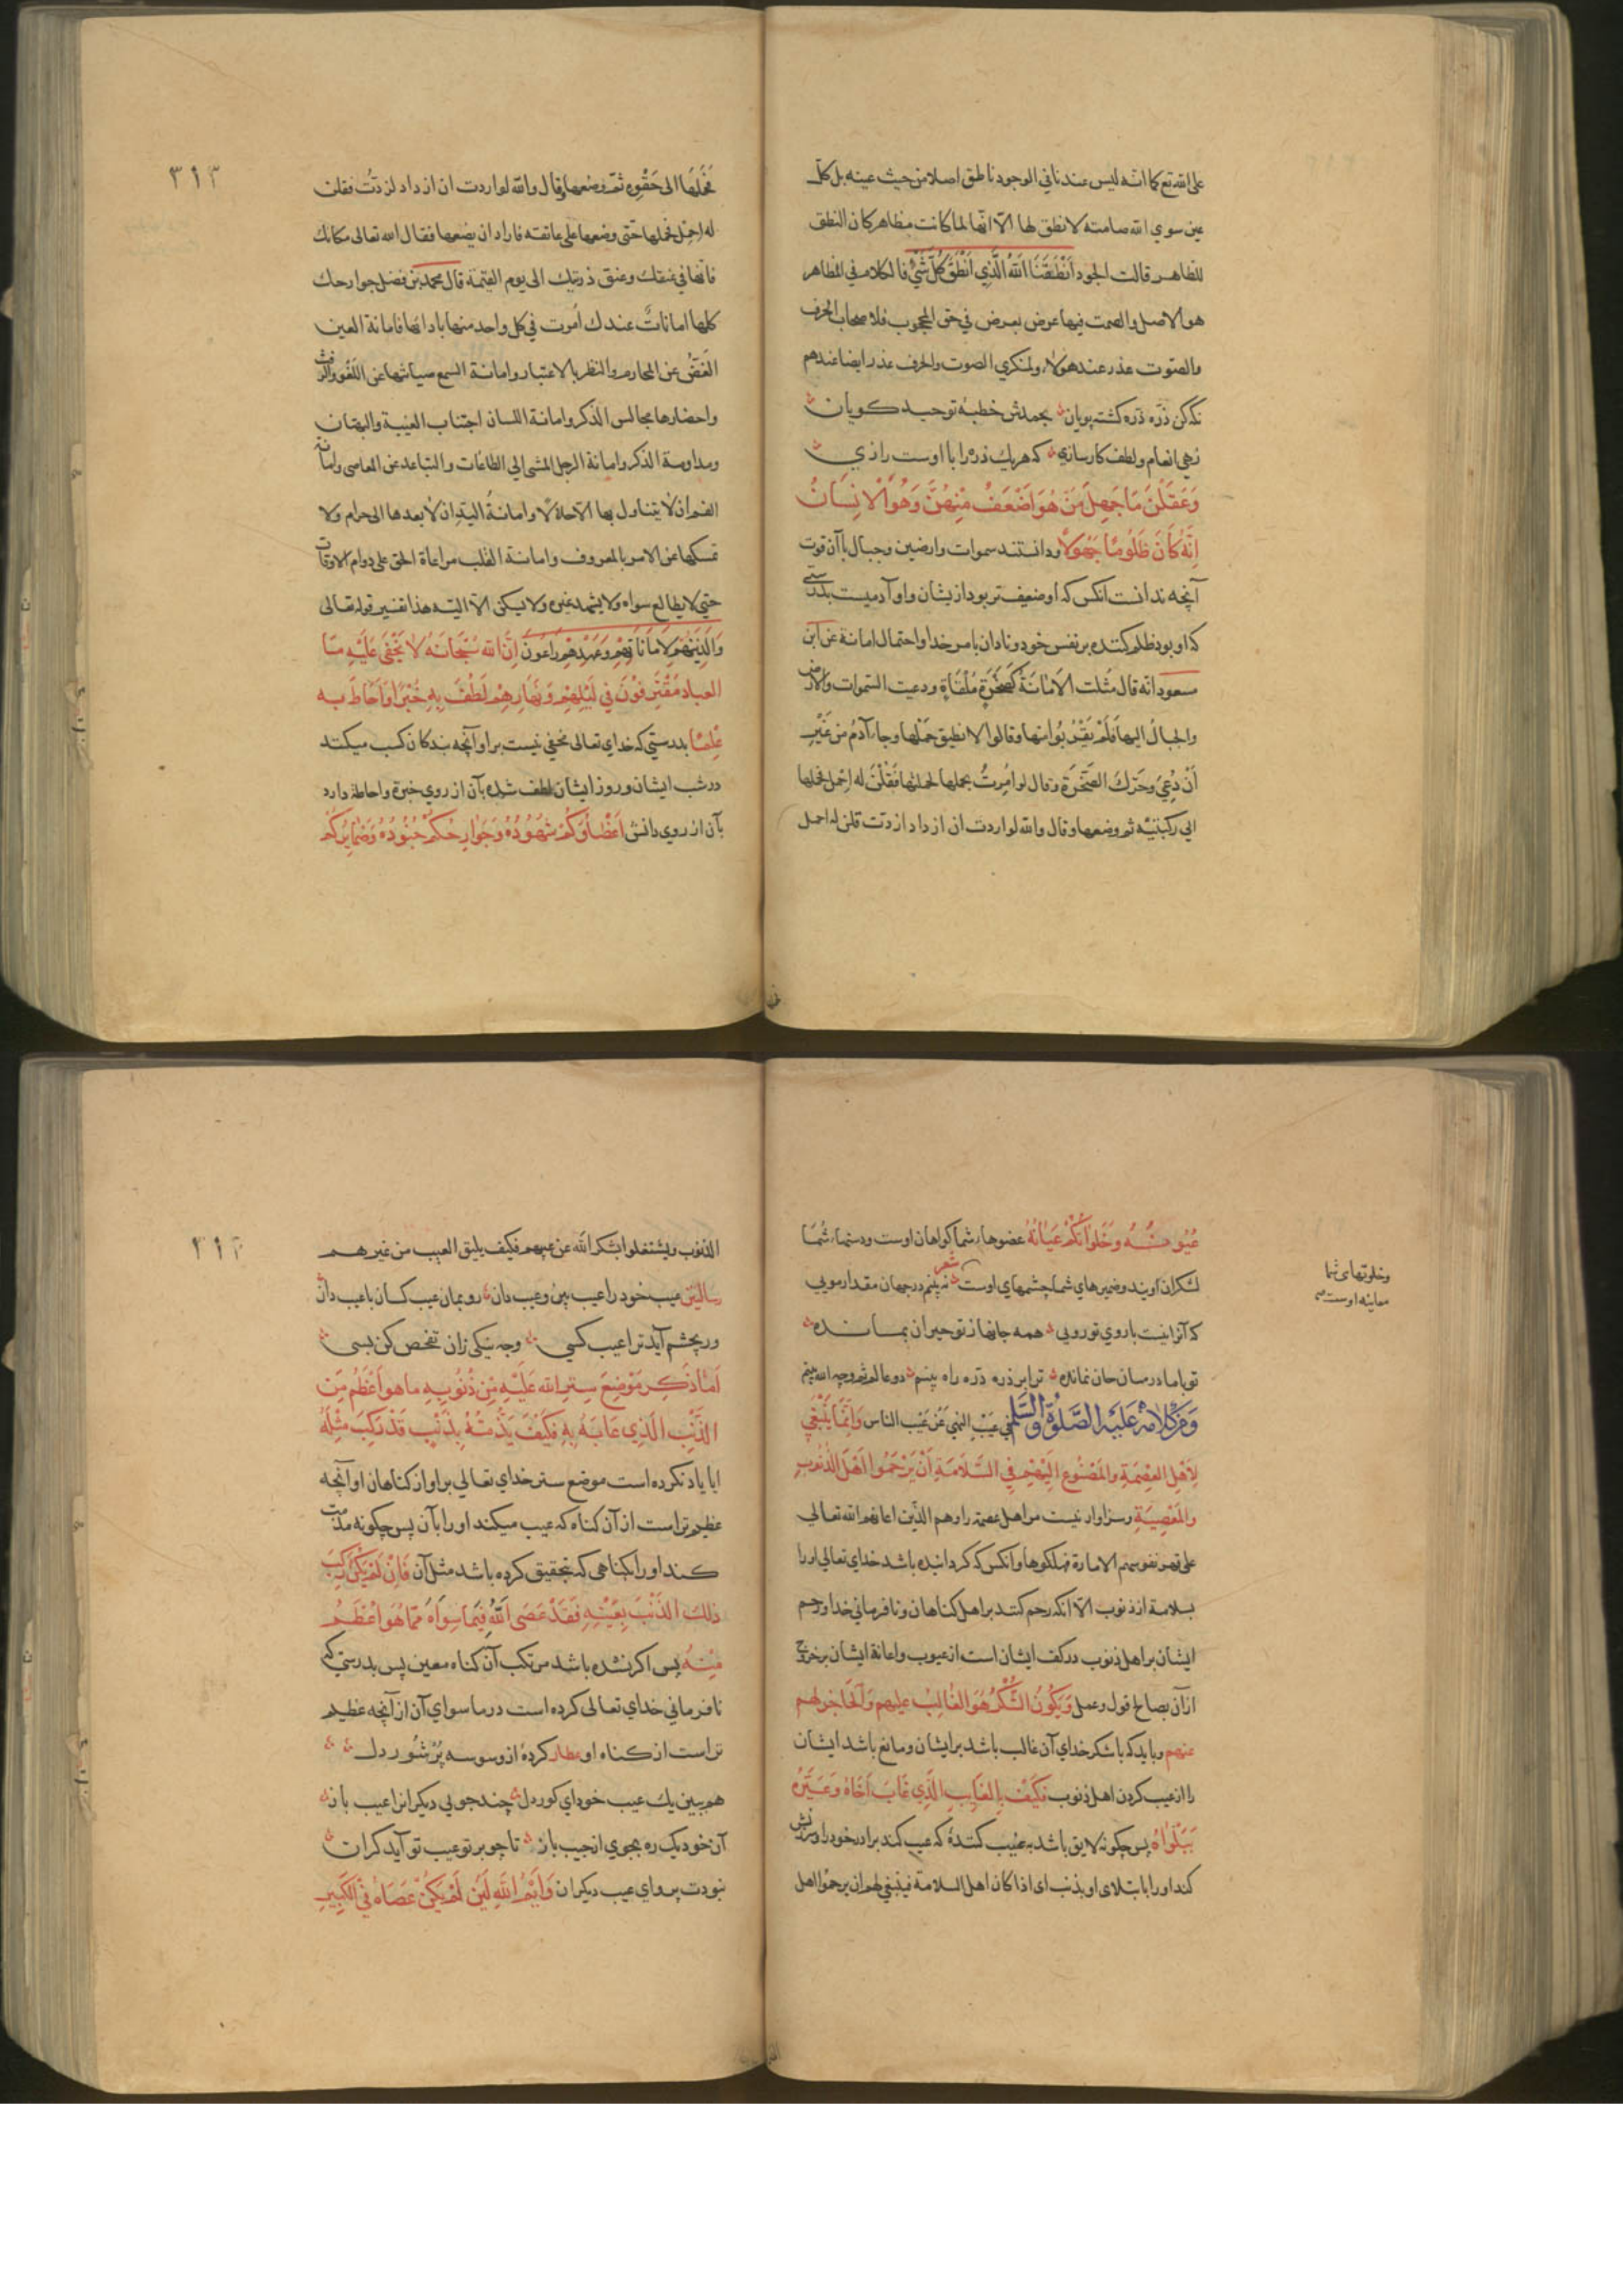 على الله تع كما انّه ليس عندنا في الوجود ناطق اصلا من حيث عينه بل كلّ
عين سوي الله صامتة لا نطق لها الاّ انّها لما كانت مظاهر كان النطق
للظاهر قالت الجلود اَنْطَقَنَا اللهُ الَّذِي اَنْطَقَ كُلَّ شَيْءٍ فالكلام في المظاهر
هو الاصل والصمت فيها عرض يعرض في حق المحجوب فلاصحاب الحرف
والصّوت عذر عند هولاء ولمنكري الصوت والحرف عذر ايضا عندهم
نكه كن ذرّه ذرّه كشته پويان بحمدش خطبهٔ توحيد كويان
زهي انعام ولطف كارسازي كه هريك ذرّه را با اوست رازي
وَعَقَلْنَ مَا جَهِلَ مَنْ هُوَ اَضْعَفُ مِنْهُنَّ وَهُوَ الْاِنْسَانُ
اِنَّهُ كَانَ ظَلُومًا جَهُولًا ودانستند سموات وارضين وجبال با آن قوت
آنچه ندانست انكس كه او ضعيف تر بود از يشان واو آدميست بدرستي
كه او بود ظلم كننده بر نفس خود ونادان بامر خدا واحتمال امانة عن ابن
مسعود انّه قال مثلت الاَمَانَةُ كَصَخْرَةٍ مُلْقَاةٍ ودعيت السّموات والارض
والجبالُ اليها فَلَمْ يَقْرُبُوا منها وقالوا لا نطيق حَمْلَها وجاء آدَمُ من غَيْرِ
اَنْ دُعِيَ وَحَرَّكَ الصَّخْرَةَ وقال لو اُمِرتُ بحملها لحملتها فَقُلْنَ له اِحْمِل فحملها
الي ركبتيه ثم وضعها وقال والله لو اردت ان ازداد ازددت قلن له احمل
٣١٣
فحملها الى حَقْوِه ثمّ وضعها وقال والله لو اردت ان ازداد لزددتُ فقلن
له اِحْمِل فحملها حتّى وضعها على عاتقه فاراد ان يضعها فقال الله تعالى مكانك
فانّها في عنقك وعنق ذريتك الى يوم القيمة قال محمد بن فضل جوارحك
كلها اماناتٌ عندك اُمِرت في كل واحد منها بادائها فامانة العين
الغَضُّ عن المحارم والنظر بالاعتبار وامانة السمع صيانتها عن اللّغو والرفث
واحضارها مجالس الذكر وامانة اللسان اجتناب الغيبة والبهتان
ومداومة الذكر وامانة الرجل المشي الي الطاعات والتباعد عن المعاصي وامانة
الفم ان لا يتناول بها الاّ حلالا وامانةُ اليد ان لا يمدها الى حرام ولا
تمسكها عن الامر بالمعروف وامانة القلب مراعاة الحق على دوام الاوقات
حتي لا يطالع سواه ولا يشهد غيره ولا يسكن الاّ اليه هذا تفسير قوله تعالى
وَالَّذِينَ هُمْ لِاَمَانَاتِهِمْ وَعَهْدِهِمْ رَاعُونَ اِنَّ اللهَ سُبْحَانَهُ لَا يَخْفَى عَلَيْهِ مَا
العباد مُقْتَرِفُونَ فِي لَيْلِهِمْ وَنَهَارِهِمْ لَطُفَ بِهِ خُبْرًا وَاَحَاطَ بِهِ
عِلْمًا بدرستي كه خداي تعالى مخفي نيست بر او آنچه بندكان كسب ميكنند
در شب ايشان وروز ايشان لطف شده بآن از روي خبرة واحاطه دارد
بآن از روي دانش اَعْضَاؤُكُمْ شُهُودُهُ وَجَوَارِحُكُمْ جُنُودُهُ وَضَمَايِرُكُمْ
عُيُونُهُ وَخَلَوَاتُكُمْ عَيَانُهُ عضوهاء شما كواهان اوست ودستهاء شما
لشكران اويند وضميرهاي شما چشمهاي اوست شعر نه بينم در جهان مقدار مويي
وخلوتهاي شما
معاينه اوست صح
كه آنرا نيست با روي تو رويي همه جانها ز تو حيران بمانده
تو با ما در ميان جان نمانده ترا بر ذره ذره راه بينم دو عالم ثم وجه الله بينم
وَمِنْ كَلَامِهِ عَلَيْهِ الصَّلَوةُ وَالسَّلَمُ في عَيْبِ النهي عَنْ عَيْبِ الناس وَاِنَّمَا يَنْبَغِي
لِاَهْلِ العِصْمَةِ وَالمَصْنُوعِ اِلَيْهِمْ فِي السَّلَامَةِ اَنْ يَرْحَمُوا اَهْلَ الذُّنُوبِ
وَالمَعْصِيَةِ وسزاوار نيست مر اهل عصمة را وهم الّذين اعانهم الله تعالي
على قهر نفوسهم الامارة فملكوها وانكس كه كردانيده باشد خداي تعالى او را
بسلامة از ذنوب الاّ انكه رحم كنند بر اهل كناهان ونافرماني خدا ورحم
ايشان بر اهل ذنوب در كف ايشان است از عيوب واعانة ايشان بر خروج
از آن بصالح قول وعمل وَيَكُونُ الشُّكْرُ هُوَ الغَالِبُ عليهم وَالحَاجِزَ لهم
عنهم وبايد كه باشكر خداي آن غالب باشد بر ايشان ومانع باشد ايشان
را از عيب كردن اهل ذنوب فَكَيْفَ بِالعَايِبِ الَّذِي عَابَ اَخَاهُ وَعَيَّرَهُ
بِبَلْوَاهُ پس چكونه لايق باشد به عيب كنندهٔ كه عيب كند برادر خود را وسرزنش
كند او را با بتلاي او بذنب اى اذا كان اهل السلامة فينبغي لهم ان يرحموا اهل
٣١٣
الذنوب ويشتغلوا بشكر الله عن عيبهم فكيف يليق العيب من غيرهم
عيب خود را عيب بين وعيب دان رو بمان عيب كسان با عيب دان
ور بچشم آيد ترا عيب كسي وجه نيكي زان تفحص كن بسي
اَمَا ذَكَرَ مَوْضِعَ سِتْرِ اللهِ عَلَيْهِ مِنْ ذُنُوبِهِ ما هو اَعْظَمُ مِنَ
الذَّنْبِ الَّذِي عَابَهُ بِهِ فَكَيْفَ يَذُمُّهُ بِذَنْبٍ قَدْ رَكِبَ مِثْلَهُ
ايا ياد نكرده است موضع ستر خداي تعالي بر او از كناهان او آنچه
عظيم تر است از آن كناه كه عيب ميكند او را بآن پس چكونه مذمت
كند او را بكناهي كه بتحقيق كرده باشد مثل آن فَاِنْ لَمْ يَكُنْ رَكِبَ
ذلك الذَّنْبَ بِعَيْنِهِ فَقَدْ عَصَى اللهَ فِيمَا سِوَاهُ مِمَّا هُوَ اَعْظَمُ
مِنْهُ پس اكر نشده باشد مرتكب آن كناه معين پس بدرستي كه
نافرماني خداي تعالى كرده است در ما سواي آن از آنچه عظيم
تر است از كناه او عطار كردهٔ از وسوسه پر شور دل
هم ببين يك عيب خود اي كور دل چند جويي ديكرانرا عيب باز
آن خود يك ره بجوي از جيب باز تا چو بر تو عيب تو آيد كران
نبودت پرواي عيب ديكران وَاَيْمُ اللهِ لَئِنْ لَمْ يَكُنْ عَصَاهُ فِي الكَبِيرِ